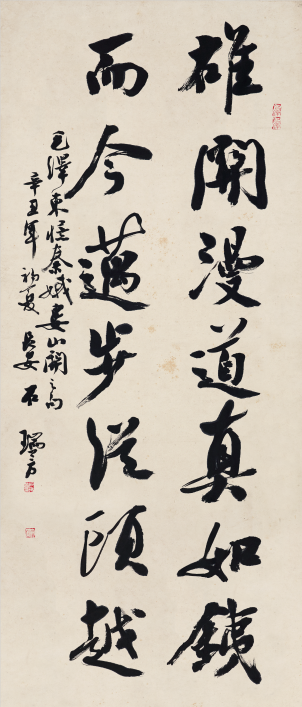 雄關漫道真如銕
而今邁步從頭越
毛澤東憶秦娥婁山關之句
辛丑年初夏長安石瑞芳